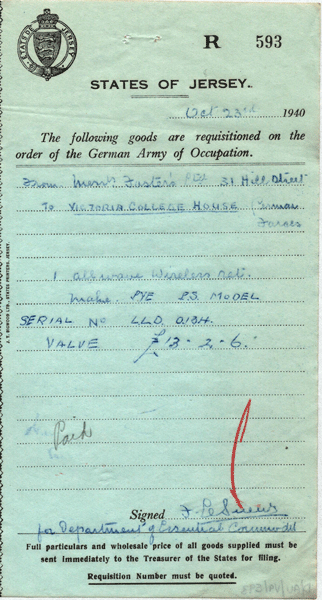 R 593
STATES OF JERSEY.
Oct 23rd 1940
The following goods are requisitioned on the
order of the German Army of Occupation.
From Messrs Foster's 31 Hill Street
To VICTORIA COLLEGE HOUSE German
Forces
1 allwave Wireless set.
Make PYE P.S. MODEL
SERIAL No LLD 0134
VALVE £13 - 2 - 6.
Paid
Signed F Le Sueur
for Department of Essential Commodit
Full particulars and wholesale price of all goods supplied must be
sent immediately to the Treasurer of the States for filing.
Requisition Number must be quoted.